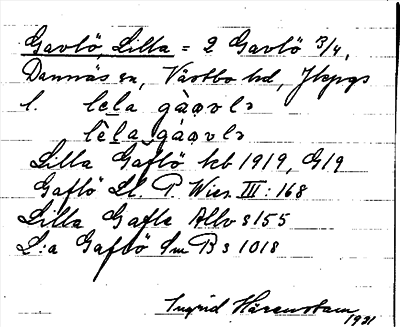 Gavlö, Lilla = 2 Gavlö 3/4,
Dannäs sn, Västbo hd, Jkpgs
l. lɛla gàꜵvlɔ
lèla gàꜵvlɔ
Lilla Gaflö kb 1919, G19
Gaflö Ll. P. Wies. III: 168
Lilla Gafla Allv s 155
L:a Gafvlö Sm B s 1018
Ingrid Härenstam
1931